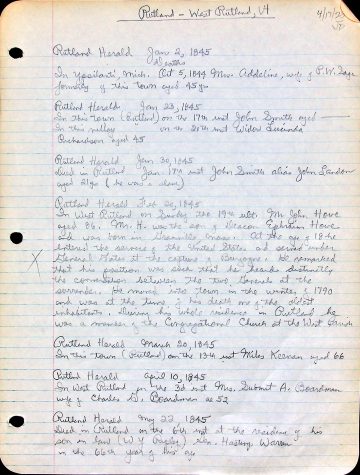 Rutland - West Rutland, Vt
4/17/
Rutland Herald Jan 2, 1845
Deaths
In Ypsilanti, Mich. Oct 5, 1844 Mrs. Addeline, wife of P.W.
formerly of this town aged 45 yrs
Rutland Herald Jan 23, 1845
In this town (Rutland) on the 17th inst John Smith aged
In this village on the 20th inst Widow Lucinda
Richardson aged 45
Rutland Herald Jan 30, 1845
Died in Rutland Jan. 17th inst John Smith alias John Landon
aged 21 yrs (he was a slave)
Rutland Herald Feb 20, 1845
In West Rutland on Sunday the 19th ult. Mr John Howe
aged 86. Mr. H. was the son of Deacon Ephraim Howe
He was born in Granville, Mass. At the age of 18 he
entered the service of the United States and served under
General Gates at the capture of Burgoyne. He remarked
that his position was such that he heard distinctly
the conversation between the two Generals at the
surrender. He moved into town in the winter of 1790
and was at the time of his death one of the oldest
inhabitants. During his whole residence in Rutland he
was a member of the Congregational Church at the West Parish
Rutland Herald March 20, 1845
In this town (Rutland) on the 13th inst Miles Keenan aged 66
Rutland Herald April 10, 1845
In West Rutland on the 3d inst Mrs. Submit A. Boardman
wife of Charles G. Boardman ae 52
Rutland Herald May 22, 1845
Died in Rutland on the 6th inst at the residence of his
son in law (W Y) Hastings Warren
in the 66th year of his age